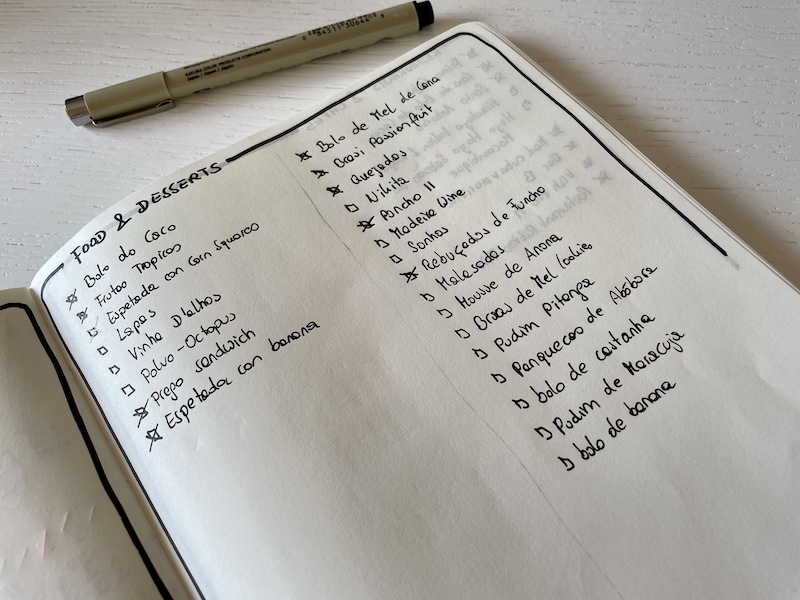 SAKURA COLOR PRODUCTS CORPORATION
FOOD & DESSERTS
Bolo do Caco
Frutas Tropicas
Espetada con Corn Squares
Lapas
Vinha D'alhos
Polvo - Octopus
Prego sandwich
Espetada con banana
Bolo de Mel de Cana
Brasi Passionfruit
Queijadas
Nikita
Poncho II
Madeira Wine
Sonhos
Rebuçados de Funcho
Malasadas
Mousse de Anona
Broas de Mel Cookies
Pudim Pitanga
Panquecas de Abóbora
bolo de castanha
Pudim de Maracuja
bolo de banana